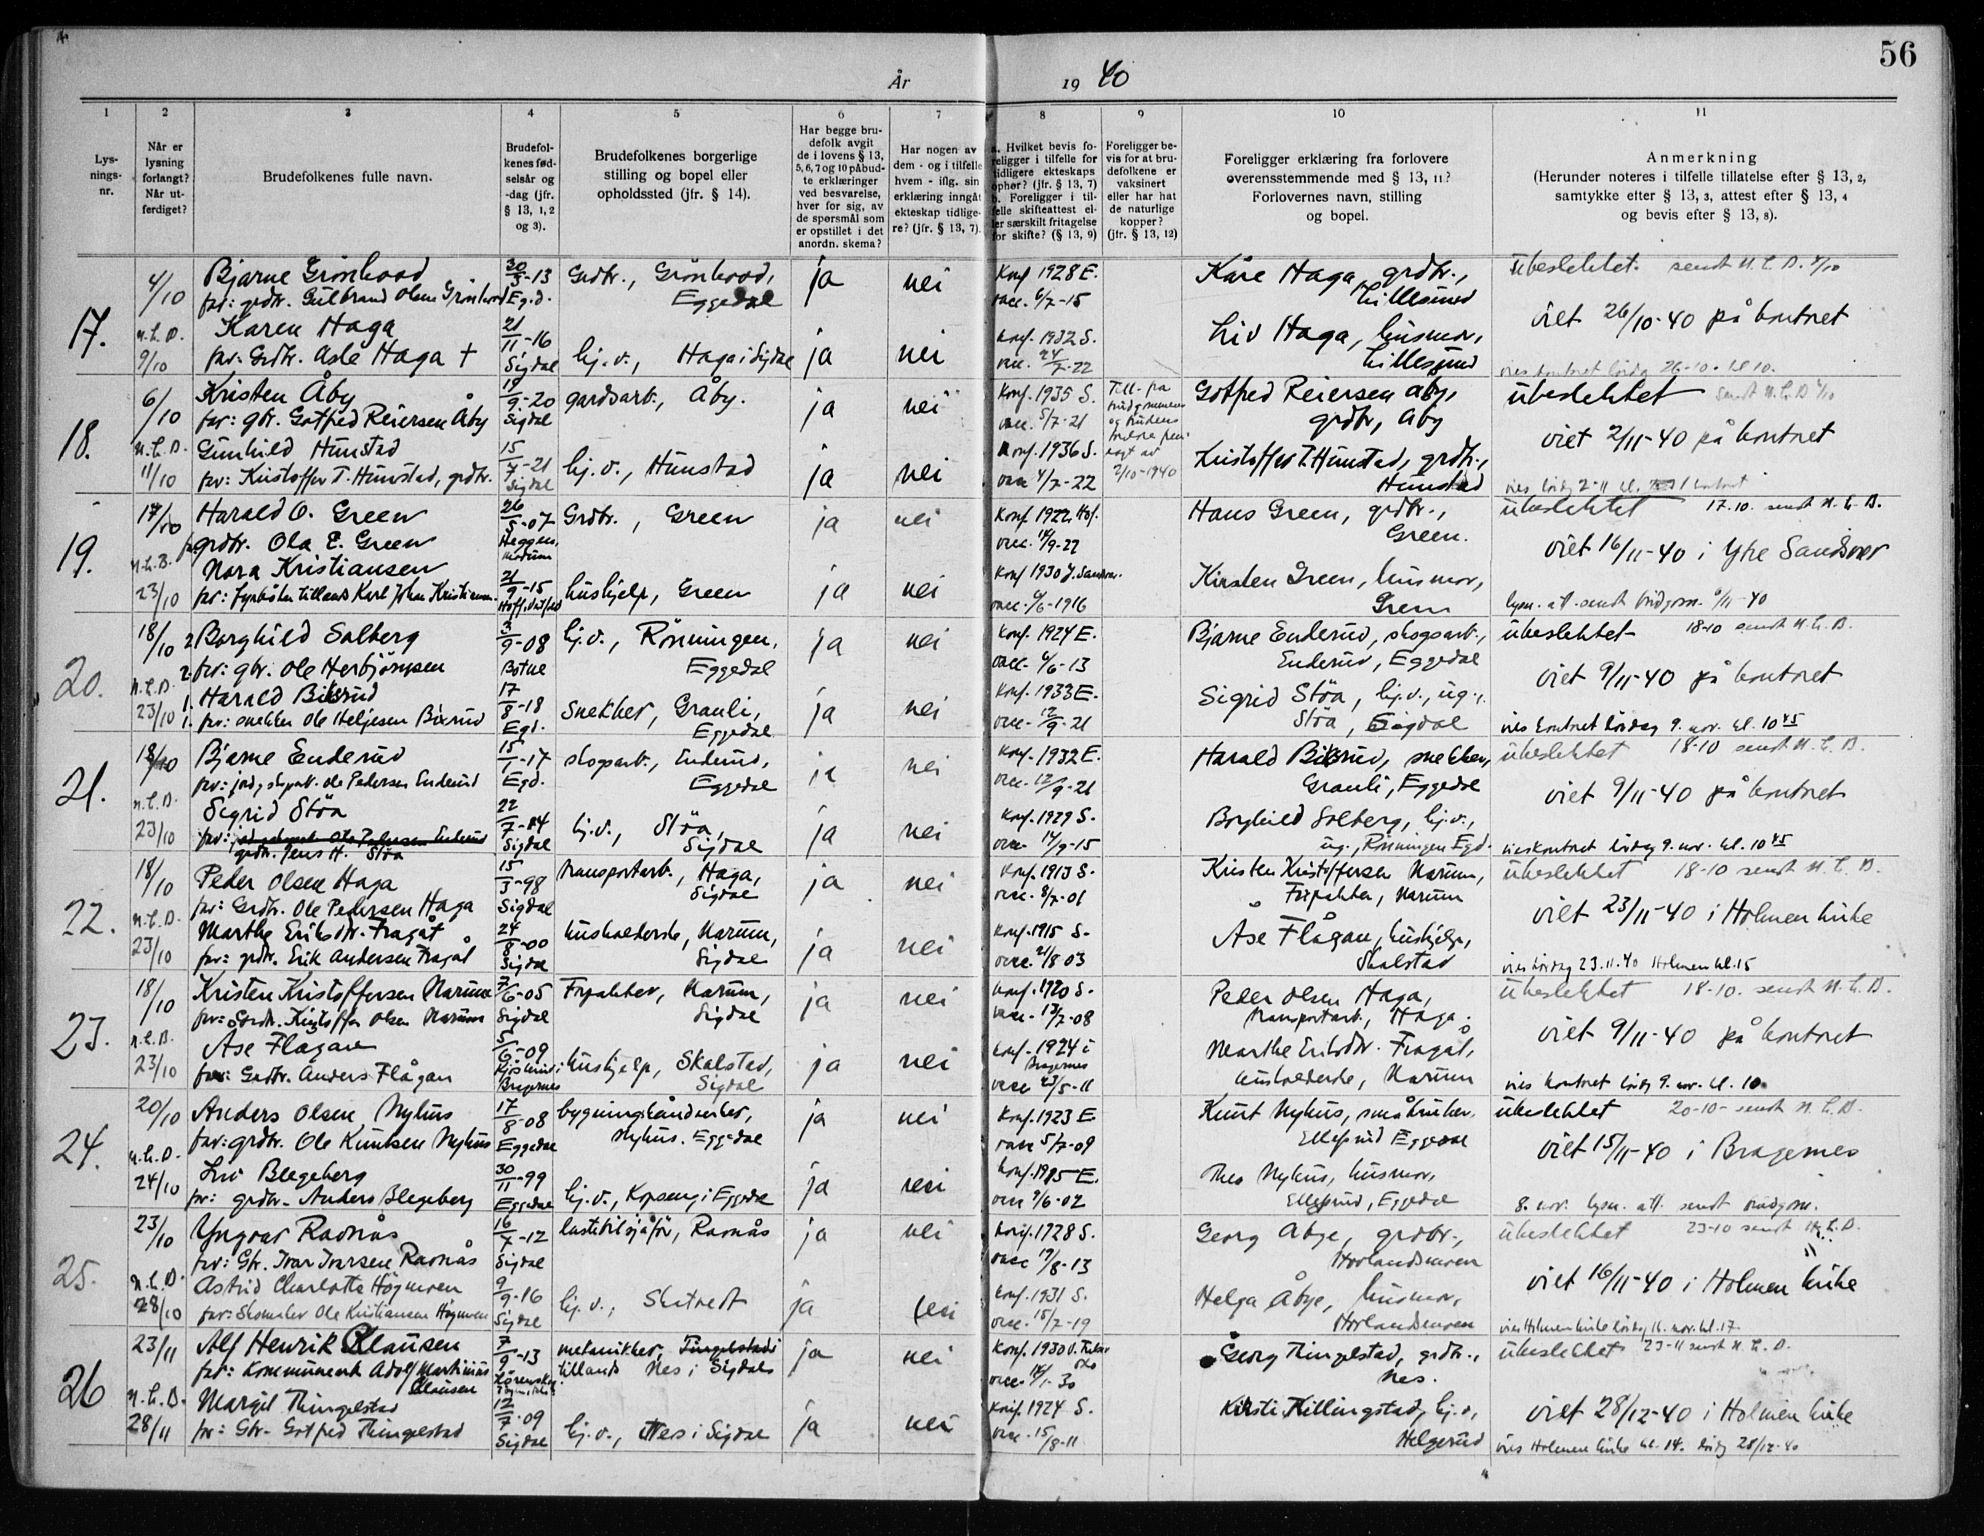 56
År 1940
1 2 3 4 5 6 7 8 9 10 11
Lysnings-nr.
Når er lysning forlangt? Når utferdiget?
Brudefolkenes fulle navn.
Brudefolkenes fødselsår og -dag (jfr. § 13, 1, 2 og 3).
Brudefolkenes borgerlige stilling og bopel eller opholdssted (jfr. § 14).
Har begge brudefolk avgit de i lovens § 13, 5, 6, 7 og 10 påbudte erklæringer ved besvarelse, hver for sig, av de spørsmål som er opstillet i det anordn. skema?
Har nogen av dem - og i tilfelle hvem - iflg. sin erklæring inngått ekteskap tidligere? (jfr. § 13, 7).
a. Hvilket bevis foreligger i tilfelle for tidligere ekteskaps ophør? (jfr. § 13, 7) b. Foreligger i tilfelle skifteattest eller særskilt fritagelse for skifte? (§ 13, 9)
Foreligger bevis for at brudefolkene er vaksinert eller har hat de naturlige kopper? (jfr. § 13, 12)
Foreligger erklæring fra forlovere overensstemmende med § 13, 11? Forlovernes navn, stilling og bopel.
Anmerkning (Herunder noteres i tilfelle tillatelse efter § 13, 2, samtykke etter § 13, 3, attest efter § 13, 4 og bevis efter § 13, 8).
17. 4/10 Bjarne Grönhovd 30/3-13 Grdbr., Grönhovd, ja nei Konf 1928 E. Kåre Haga, grdbr., Ubeslektet. sendt N.L.D. 9/10
far: grdbr. Gulbrand Olsen Grönhovd Egd. Eggedal vacc. 6/7-15 Lillesund
viet 26/10-40 på kontoret
N.L.D. Karen Haga 21/11-16 Konf. 1932 S. Liv Haga, husmor,
9/10 far: Grdbr. Asle Haga + Sigdal hj.v., Haga i Sigdal ja nei vacc. 24/7-22 Lillesund
vies kontoret lördag 26-10. kl 10.
18. 6/10 Kristen Åby 19/9-20 gardsarb., Åby. ja nei Konf. 1935 S. Gotfred Reiersen Åby, ubeslektet
far: gbr. Gotfred Reiersen Åby Sigdal vacc. 5/7-21 grdbr, Åby
viet 2/11-40 på kontoret
N.L.D. Gunhild Hunstad 15/7-21 Konf. 1936 S. Kristoffer T. Hunstad, grdbr.,
11/10 far: Kristoffer T. Hunstad, grdbr. Sigdal hj.v., Hunstad ja nei vacc 4/7-22 2/10-1940 Hunstad
19. 17/10 Harald O. Green 26/5-07 Grdbr., Green ja nei Konf. 1922 Hans Green, grdbr., ubeslektet 17.10. sendt N.L.D.
far grdbr. Ola E. Green Heggen, Modum Green.
viet 16/11-40 i Ytre Sandsvær
N.L.D. Nora Kristiansen 21/9-15 Konf 1930 Y. Sandsv. Kirsten Green, husmor,
23/10 far: fyrböter tillands Karl Johan Kristiansen. hushjelp, Green ja nei vacc. 6/6-1916 Green
20. 18/10 2. Borghild Solberg 3/9-08 hj.v., Rönningen, ja nei Konf. 1924 E. Bjarne Enderud, skogsarb., ubeslektet 18-10 sendt N.L.D.
2. far: gbr. Ole Herbjörnsen Botne Eggedal vacc. 6/6-13 Enderud, Eggedal
viet 9/11-40 på kontoret
N.L.D. 1. Harald Bikrud 17/8-18 Snekker, Grauli, ja nei Konf. 1933 E. Sigrid Stöa, hj.v., ug.,
23/10 1. far: snekker Ole Heljesen Bikrud Egd. Eggedal vacc. 12/9-21 Stöa, Sigdal
vies kontoret lördag 9. nov. kl. 10 45
21. 18/10 Bjarne Enderud 15/1-17 skogsarb., Enderud, ja nei Konf. 1932 E. Harald Bikrud, snekker, ubeslektet 18-10 sendt N.L.D.
far: jord, skogarb. Ole Pedersen Enderud Egd. Eggedal vacc. 12/9-21 Grauli, Eggedal
viet 9/11-40 på kontoret
N.L.D. Sigrid Stöa 22/7-14 Konf. 1929 S. Borghild Solberg, hj.v.,
23/10 far: grdbr. Jens H. Stöa Sigdal hj.v., Stöa, Sigdal ja nei vacc 14/9-15 ug., Rönningen Egd.
vies kontoret lördag 9. nov. kl. 10 45
22. 18/10 Peder Olsen Haga 15/3-98 transportarb., Haga, ja nei Konf. 1913 S. Kristen Kristoffersen Narum, ubeslektet 18-10 sendt N.L.D.
far: Grdbr. Ole Pedersen Haga Sigdal Sigdal vacc. 8/7-01 Forpakter, Narum
viet 23/11-40 i Holmen kirke
N.L.D. Marthe Eriksdtr. Fragåt 24/8-00 husholderske, Narum, Konf. 1915 S. Åse Flågan, hushjelp,
23/10 far: grdbr. Erik Andersen Fragåt Sigdal Sigdal ja nei vacc. 21/8 03 Skalstad
vies lördag 23.11.40 Holmen kl. 15
23. 18/10 Kristen Kristoffersen Narum 7/6-05 Forpakter, Narum, ja nei Konf. 1920 S. Peder Olsen Haga, ubeslektet 18-10. sendt N.L.D.
far: Grdbr. Kristoffer Olsen Narum Sigdal Sigdal vacc. 13/7-08 transportarb., Haga.
viet 9/11-40 på kontoret
N.L.D. Åse Flågan 5/6-09 Konf. 1924 i Bragernes Marthe Eriksdtr. Fragåt,
23/10 far: Grdbr. Anders Flågan Bragernes hushjelp, Skalstad, Sigdal ja nei vacc 23/5-11 husholderske, Narum
vies kontoret lördag 9. nov. kl. 10
24. 20/10 Anders Olsen Nyhus 17/8-08 bygningshåndverker, ja nei Konf. 1923 E. Knut Nyhus, småbruker. ubeslektet 20-10- sendt N.L.D.
far: grdbr. Ole Knutsen Nyhus Eggedal Nyhus. Eggedal vacc 5/7-09 Ellefsrud Eggedal
viet 15/11-40 i Bragernes
N.L.D. Liv Blegeberg 30/11-99 Konf. 1915 E. Thea Nyhus, husmor,
24/10 far: grdbr. Anders Blegeberg Eggedal hj.v., Kopseng i Eggedal ja nei vacc 9/6-02 Ellefsrud, Eggedal
8. nov. lysn. att. sendt brudgom.
25. 23/10 Yngvar Ravnås 16/7-12 lastebilsjåför, Ravnås ja nei Konf. 1928 S. Georg Åbye, grdbr., ubeslektet 23-10 sendt N.L.D.
far: Gbr. Ivar Ivarsen Ravnås Sigdal vacc 19/8-13 Hovlandsmoen
viet 16/11-40 i Holmen kirke
N.L.D. Astrid Charlotte Högmoen 9/9-16 Konf. 1931 S. Helga Åbye, husmor,
28/10 far: Skomaker Ole Kristiansen Högmoen Sigdal hj.v., ja nei vacc. 15/7-19 Hovlandsmoen
vies Holmen kirke lördag 16. nov. kl. 17.
26 23/11 Alf Henrik Clausen 7/9-13 mekaniker, ja nei Konf. 1930 Georg Thingelstad, grdbr., ubeslektet 23-11 sendt N.L.D.
far: Kommunearb Adolf Martinius Clausen tillands Nes i Sigdal Nes.
viet 28/12-40 i Holmen kirke
N.L.D. Margit Thingelstad 12/7-09 Konf. 1924 S. Kirsti Killingstad, hj.v,
28/11 far: Gbr. Gotfred Thingelstad Sigdal hj.v., Nes i Sigdal ja nei vacc. 15/8-11 Helgerud
vies Holmen kirke kl. 14. lördag 28/12-40